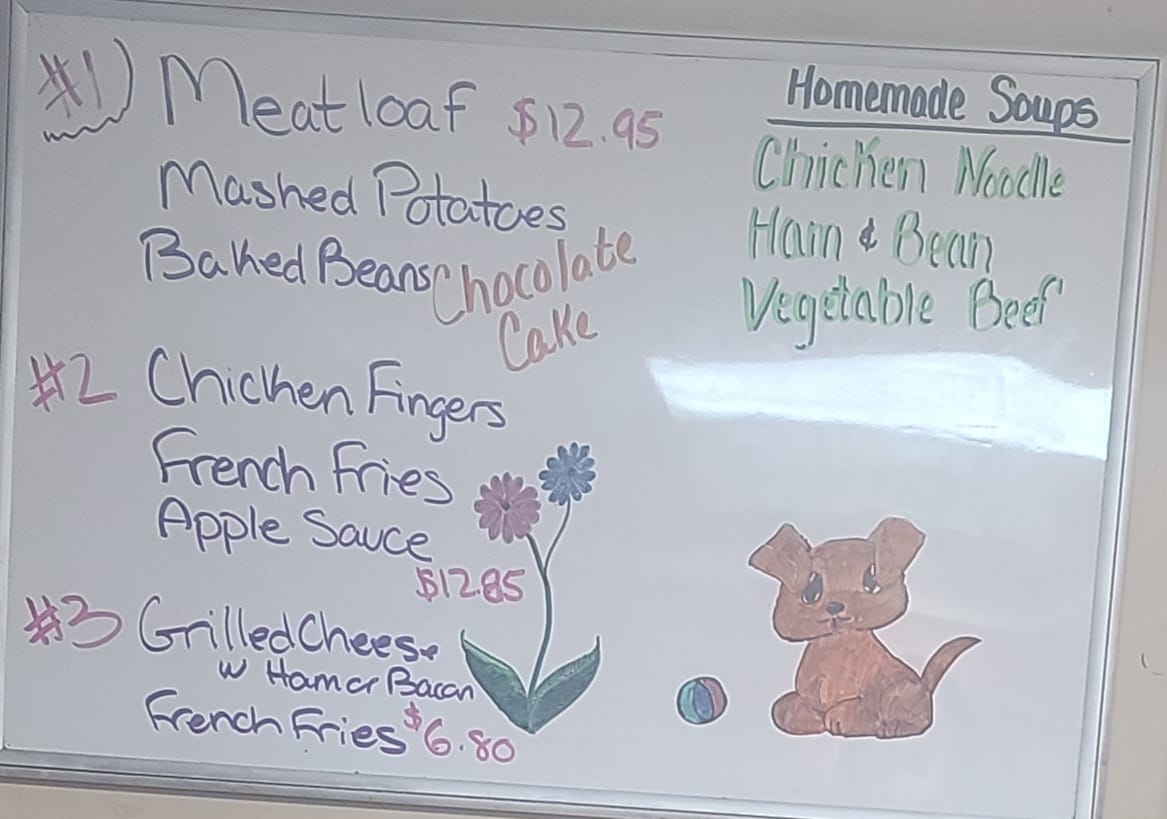 #1) Meatloaf $12.95
Mashed Potatoes
Baked Beans
Chocolate
Cake
#2 Chicken Fingers
French Fries
Apple Sauce
$12.85
#3 Grilled Cheese
w Ham or Bacon
French Fries $6.80
Homemade Soups
Chicken Noodle
Ham & Bean
Vegetable Beef